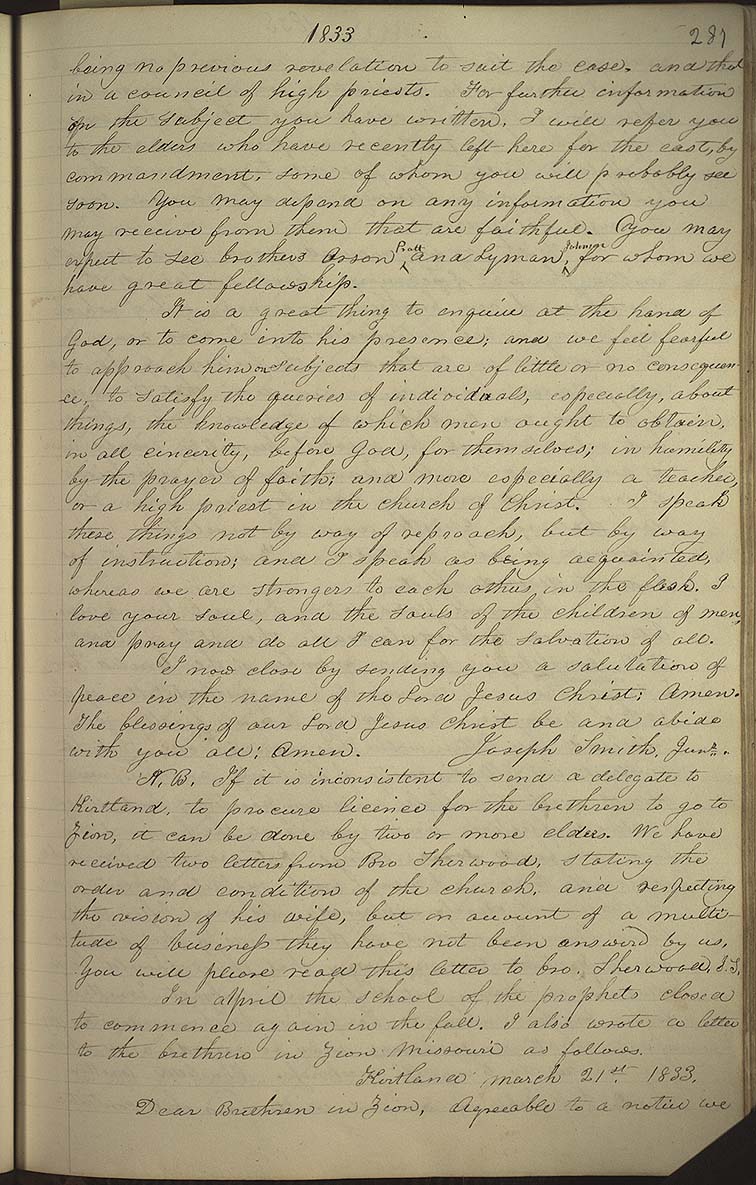 1833
281
being no previous revelation to suit the case. and that
in a council of high priests. For further information
on the subject you have written, I will refer you
to the elders who have recently left here for the east, by
commandment, some of whom you will probably see
soon. You may depend on any information you
may receive from them that are faithful. You may
expect to see brothers Orson ^Pratt and Lyman ^Johnson, for whom we
have great fellowship.
It is a great thing to enquire at the hand of
God, or to come into his presence; and we feel fearful
to approach him on subjects that are of little or no consequen-
ce, to satisfy the queries of individuals, especially, about
things, the knowledge of which men ought to obtain,
in all cincerity, before God, for themselves; in humility
by the prayer of faith; and more especially a teacher,
or a high priest in the church of Christ. I speak
these things not by way of reproach, but by way
of instruction; and I speak as being acquainted,
whereas we are strangers to each other in the flesh. I
love your soul, and the souls of the children of men,
and pray and do all I can for the salvation of all.
I now close by sending you a salutation of
peace in the name of the Lord Jesus Christ; Amen.
The blessings of our Lord Jesus Christ be and abide
with you all; Amen. Joseph Smith, Junr.
N. B. If it is inconsistent to send a delegate to
Kirtland, to procure licence for the brethren to go to
Zion, it can be done by two or more elders. We have
received two letters from Bro Sherwood, stating the
order and condition of the church, and respecting
the vision of his wife, but on account of a multi-
tude of business they have not been answerd by us,
You will please read this letter to bro. Sherwood, J. S.
In april the school of the prophets closed
to commence again in the fall. I also wrote a letter
to the brethren in Zion Missouri as follows.
Kirtland march 21st. 1833.
Dear Brethren in Zion, Agreeable to a notice we